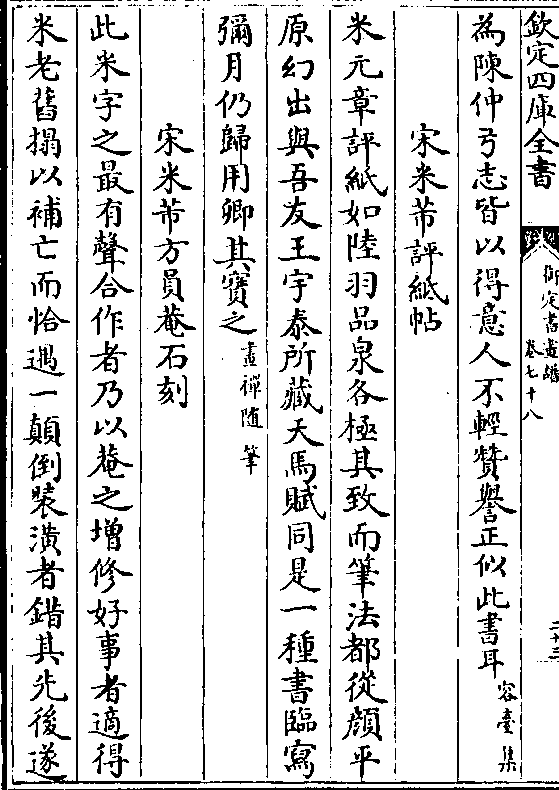 欽定四庫全書
御定書畫譜
卷七十八
二十三
為陳仲弓志皆以得意人不輕贊譽正似此書耳容臺集
宋米芾評紙帖
米元章評紙如陸羽品泉各極其致而筆法都從顏平
原幻出與吾友王宇泰所藏天馬賦同是一種書臨寫
彌月仍歸用卿其寶之畫禪随筆
宋米芾方員菴石刻
此米字之最有聲合作者乃以菴之增修好事者適得
米老舊搨以補亡而恰遇一顛倒裝潢者錯其先後遂